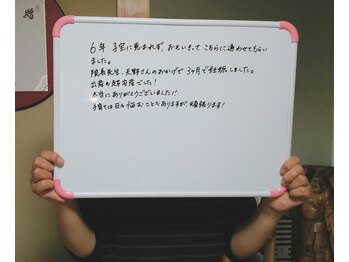 6年 子宝に恵まれず、おもいきって こちらに通わせてもらい
ました。
院長先生、天野さんのおかげで 3ヶ月で妊娠しました。
出産も超安産でした!
本当にありがとうございました!!
子育ては日々悩むこともありますが頑張ります!